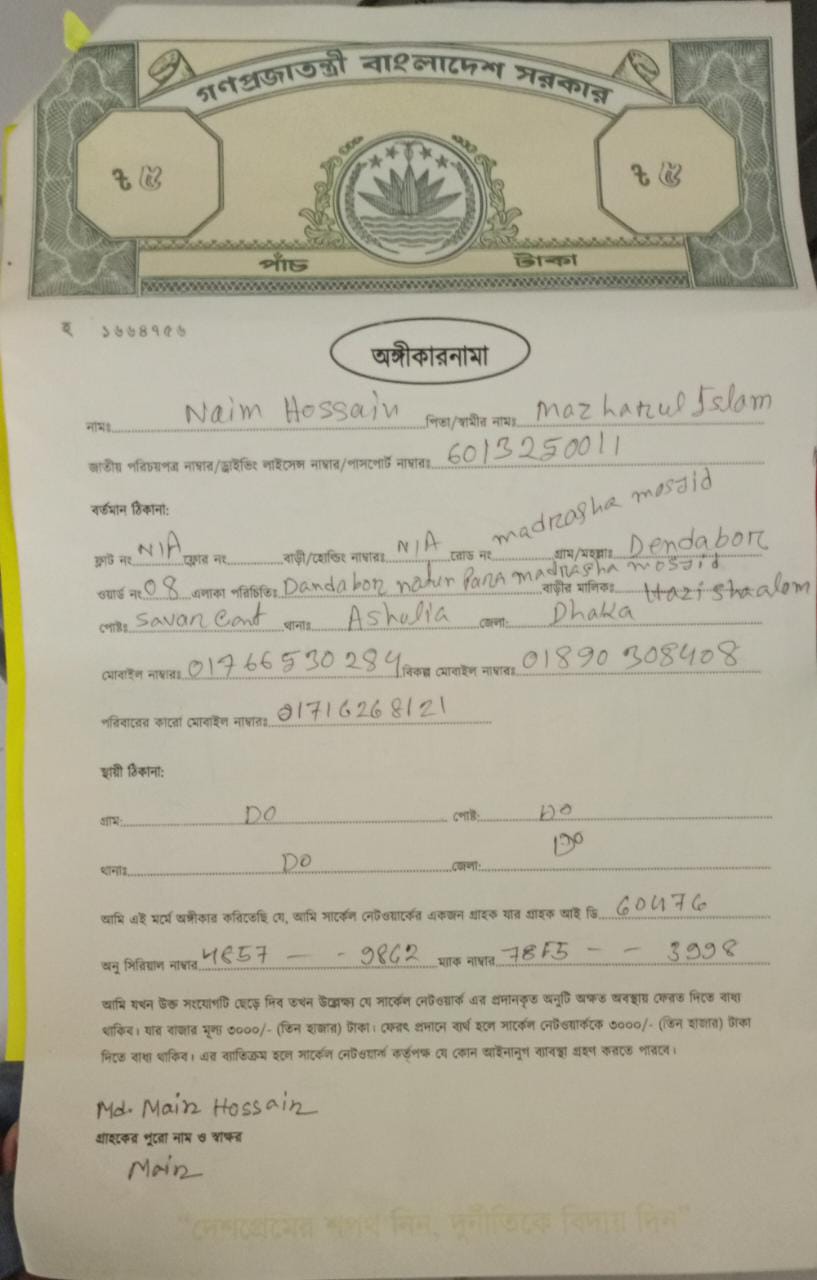 গণপ্রজাতন্ত্রী বাংলাদেশ সরকার
৳ ৫ ৳ ৫
পাঁচ টাকা
হ ১৬৬৪৭৫৬
অঙ্গীকারনামা
নামঃ Naim Hossain পিতা/স্বামীর নামঃ Mazharul Islam
জাতীয় পরিচয়পত্র নাম্বার/ড্রাইভিং লাইসেন্স নাম্বার/পাসপোর্ট নাম্বারঃ 6013250011
বর্তমান ঠিকানা:
ফ্লাট নং N/A ফ্লোর নং বাড়ী/হোল্ডিং নাম্বারঃ N/A রোড নং madrasha mosjid গ্রাম/মহল্লাঃ Dendabor
ওয়ার্ড নং 08 এলাকা পরিচিতিঃ Dandabor natun Para madrasha mosjid বাড়ীর মালিকঃ Hazi shaalom
পোষ্টঃ Savar Cant থানাঃ Ashulia জেলা: Dhaka
মোবাইল নাম্বারঃ 01766530284 বিকল্প মোবাইল নাম্বারঃ 01890 308408
পরিবারের কারো মোবাইল নাম্বারঃ 01716268121
স্থায়ী ঠিকানা:
গ্রাম: DO পোষ্ট: DO
থানাঃ DO জেলা: DO
আমি এই মর্মে অঙ্গীকার করিতেছি যে, আমি সার্কেল নেটওয়ার্কের একজন গ্রাহক যার গ্রাহক আই ডি 60476
অনু সিরিয়াল নাম্বার 4857 - - 9862 ম্যাক নাম্বার - - 3998
আমি যখন উক্ত সংযোগটি ছেড়ে দিব তখন উল্লেক্ষ্য যে সার্কেল নেটওয়ার্ক এর প্রদানকৃত অনুটি অক্ষত অবস্থায় ফেরত দিতে বাধ্য
থাকিব। যার বাজার মূল্য ৩০০০/- (তিন হাজার) টাকা। ফেরৎ প্রদানে ব্যর্থ হলে সার্কেল নেটওয়ার্ককে ৩০০০/- (তিন হাজার) টাকা
দিতে বাধ্য থাকিব। এর ব্যতিক্রম হলে সার্কেল নেটওয়ার্ক কর্তৃপক্ষ যে কোন আইনানুগ ব্যাবস্থা গ্রহণ করতে পারবে।
Md. Main Hossain
গ্রাহকের পুরো নাম ও স্বাক্ষর
Main
"দেশপ্রেমের শপথ নিন, দুর্নীতিকে বিদায় দিন"